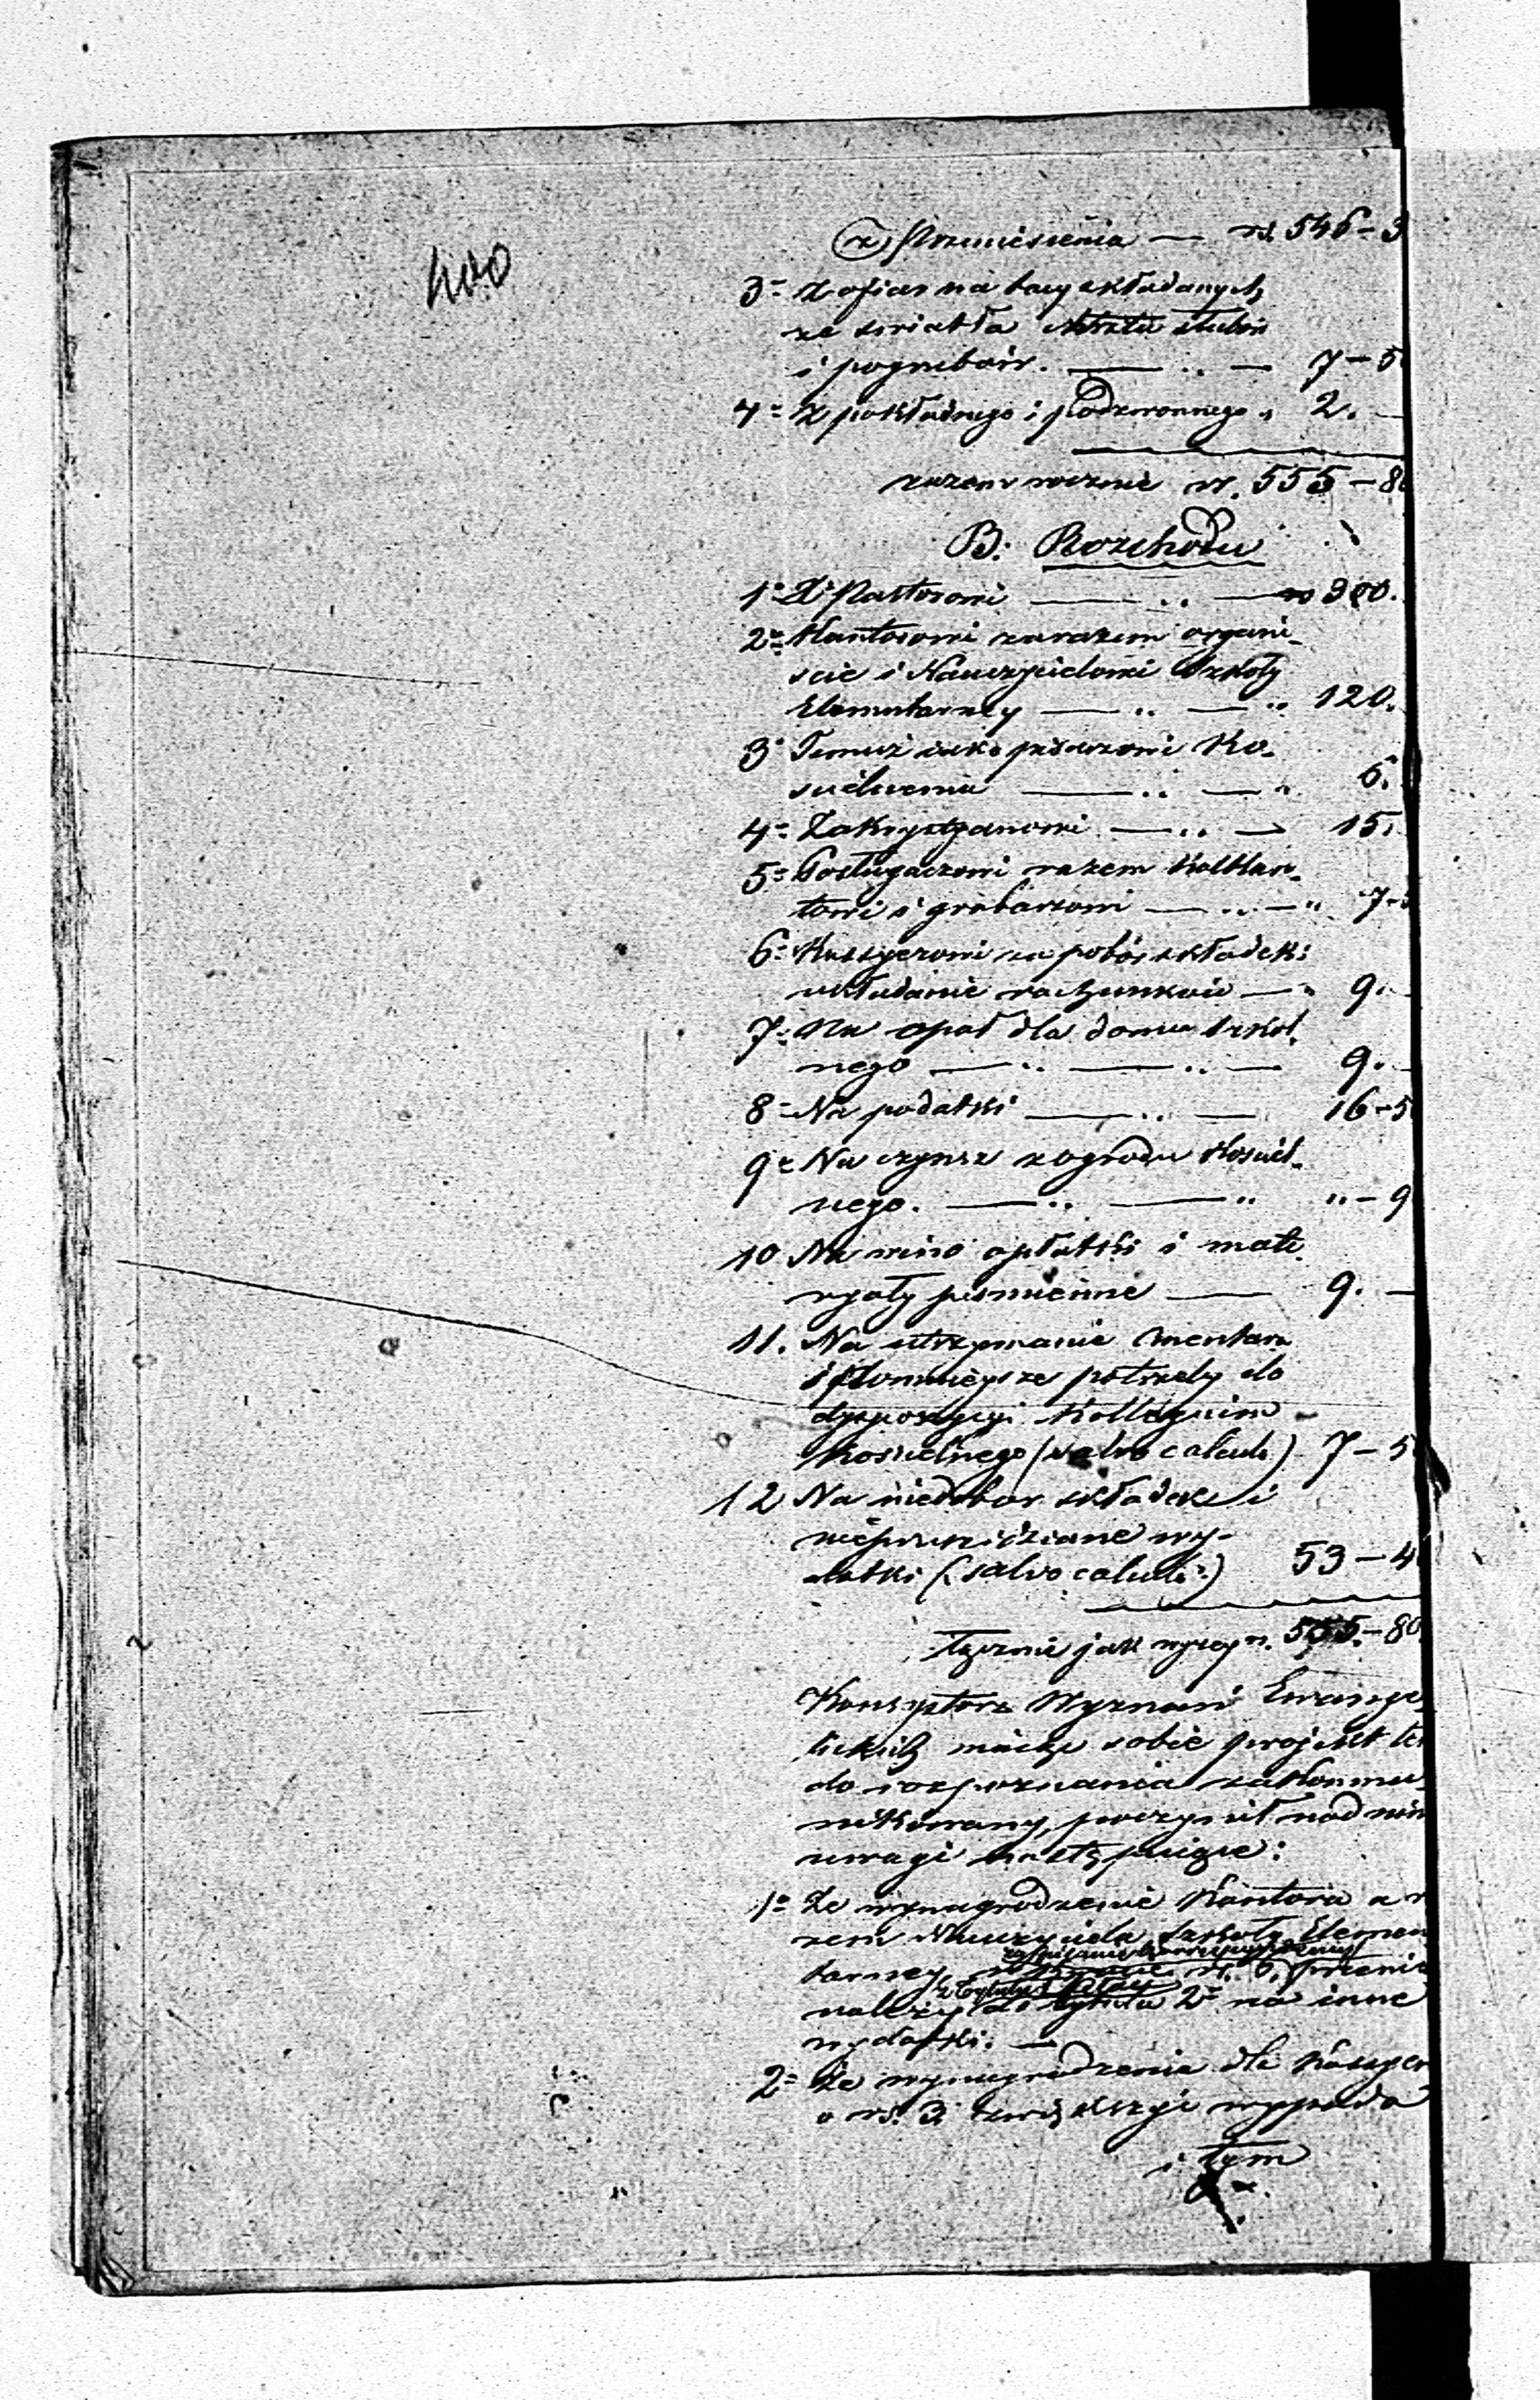 400
z Przeniesienia — rs. 546 – 3
3= Z ofiar na tacy składanych
za światła chrztu ślubów
i pogrzebów. — .. — 7 – 5
4= Z pokładnego i podzwonnego „ 2. —
razem rocznie rs. 555 – 80
B. Rozchodu
1= X. Pastorowi — .. — rs 300.
2= Kantorowi zarazem organi-
ście i Nauczycielowi Szkoły
Elementarney — .. — .. 120.
3= Temuż iako pisarzowi Ko-
ścielnemu — .. — „ 6.
4= Zakrystyanowi — .. — 15.
5= Posługaczowi razem Kalkan-
towi i grabarzowi — .. — „ 7 –
6= Kassyerowi za pobór składek i
układanie rachunków — „ 9.
7= Na opał dla domu szkol-
nego — .. — .. — 9. —
8= Na podatki — .. — 16 – 5
9= Na czynsz z ogrodu Kościel-
nego. — .. — „ „ – 9
10 Na wino opłatki i mate-
ryały piśmienne — 9. —
11. Na utrzymanie Cmentarza
i pomnieysze potrzeby do
dyspozycyi Kollegium
Kościelnego (salvo calculi) 7 – 5
12 Na niedobór składek i
nieprzewidziane wy-
datki (salvo calculi) 53 – 4
łącznie jak wyżey rs. 555 – 80.
Konsystorz Wyznań Ewange-
lickich maiąc sobie projekt te
do rozpoznania zakommu-
nikowany, poczynił nad nim
uwagi następuiące:
1= Że wynagrodzenie Kantora a r
zem Nauczyciela szkoły Elemen
tarney, rs. 6, przenie
należy do tytułu 2= na inne
wydatki. —
2= Że wynagrodzenie dla Kassyer
o rs. 3 zwiększyć wypada
i tym